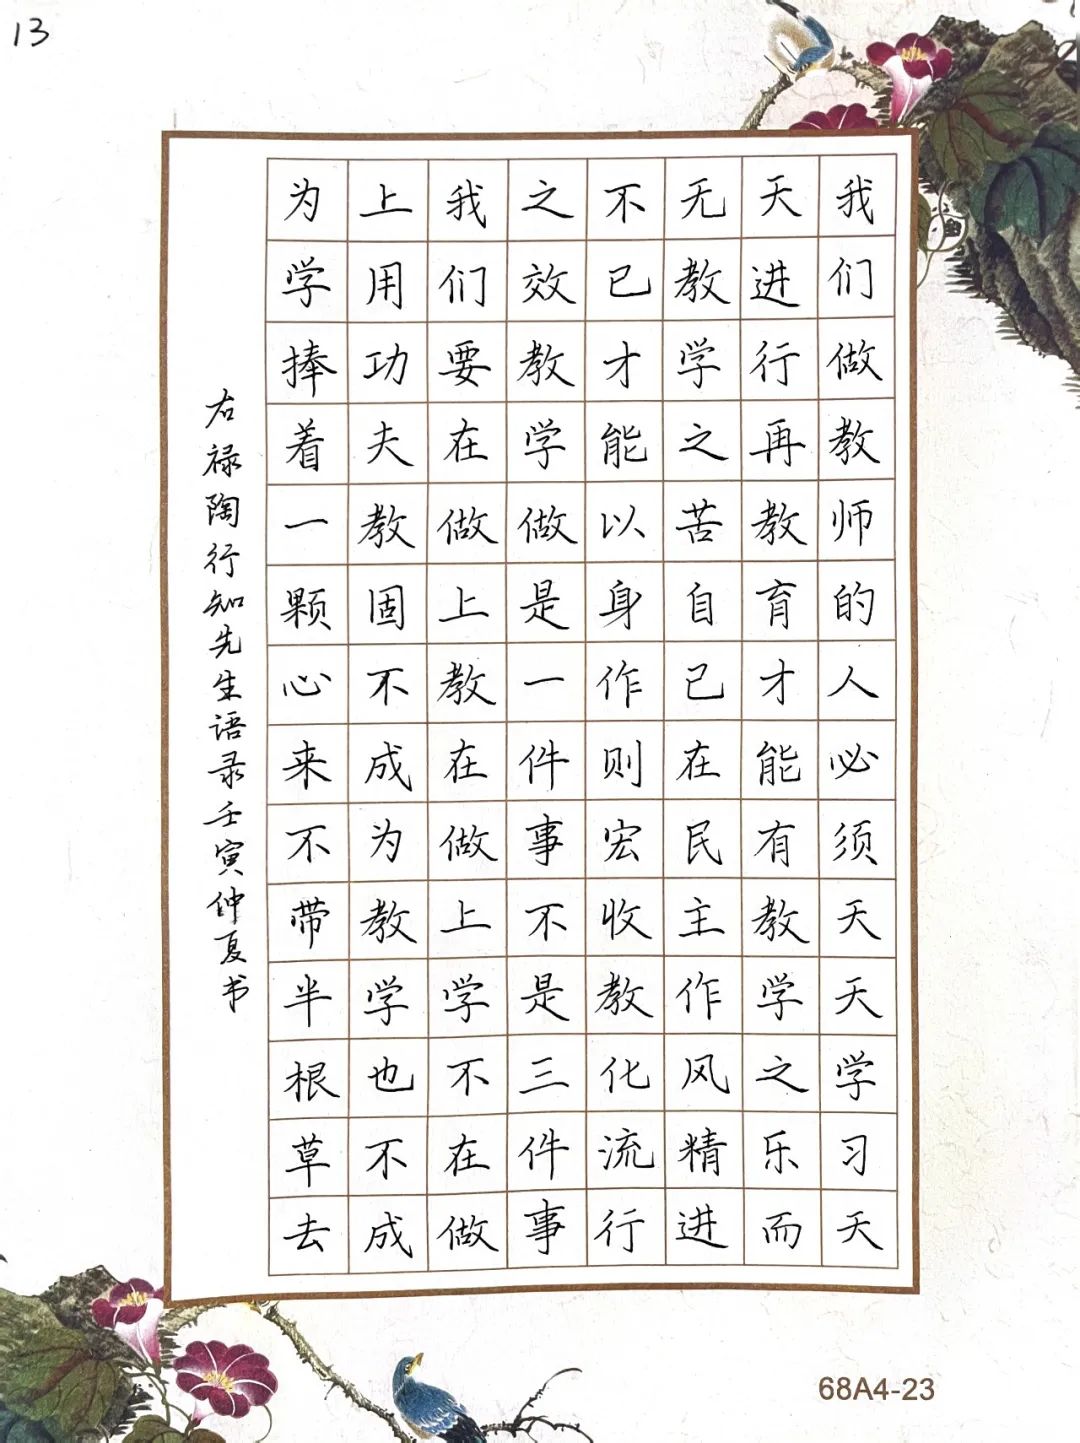 13
我们做教师的人必须天天学习天
天进行再教育才能有教学之乐而
无教学之苦自己在民主作风精进
不已才能以身作则宏收教化流行
之效教学做是一件事不是三件事
我们要在做上教在做上学不在做
上用功夫教固不成为教学也不成
为学捧着一颗心来不带半根草去
右禄陶行知先生语录壬寅仲夏书
68A4-23